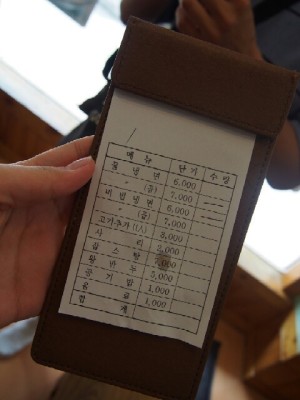 메뉴 단가 수량
물냉면 6,000
〃 (곱) 7,000
비빔냉면 6,000
〃 (곱) 7,000
고기추가 (1人) 3,000
사리 2,000
갈스탕 7,000
왕만두 5,000
공기밥 1,000
음료 1,000
합계